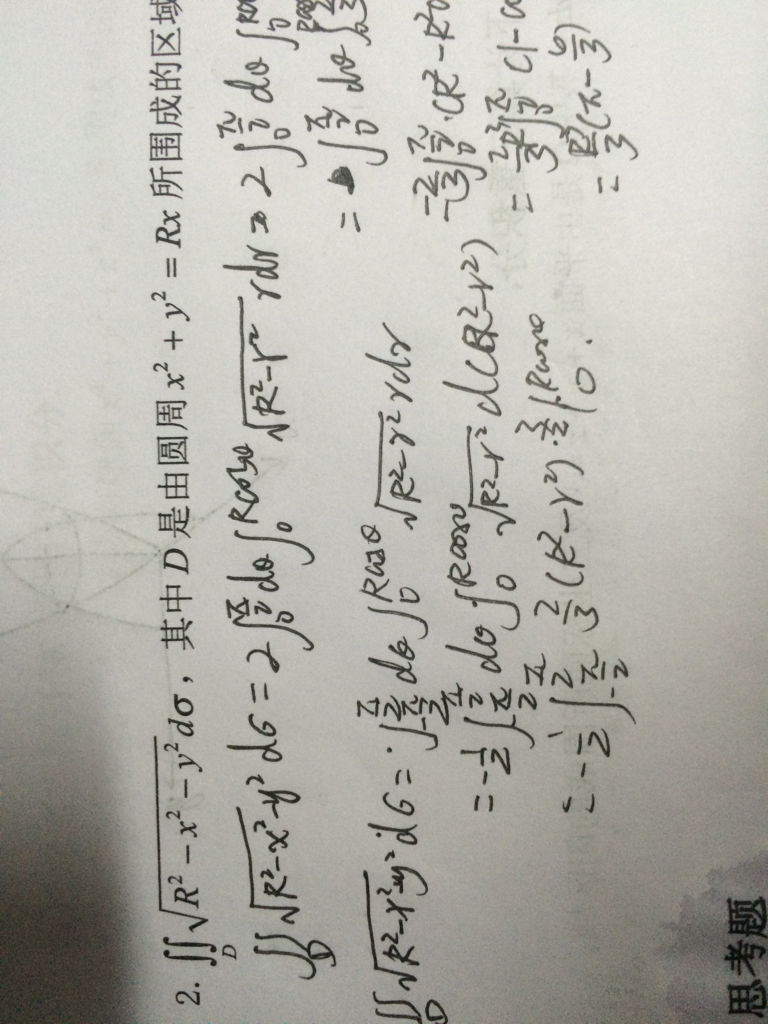 2. ∬_D √(R² − x² − y²) dσ，其中 D 是由圆周 x² + y² = Rx 所围成的区域
∬_D √(R²−x²−y²) dσ = 2∫_0^{π/2} dθ ∫_0^{Rcosθ} √(R²−r²) rdr = 2∫_0^{π/2} dθ ∫_0
= ∫_0^{π/2} dθ ∫
∬_D √(R²−x²−y²) dσ = ∫_{−π/2}^{π/2} dθ ∫_0^{Rcosθ} √(R²−r²) rdr
= −1/2 ∫_{−π/2}^{π/2} dθ ∫_0^{Rcosθ} √(R²−r²) d(R²−r²)
= −1/2 ∫_{−π/2}^{π/2} 2/3 (R²−r²)^{3/2} |_0^{Rcosθ}.
−2/3 ∫_0^{π/2} (R²−R²
= 2/3 R³ ∫_0^{π/2} (1−
思考题